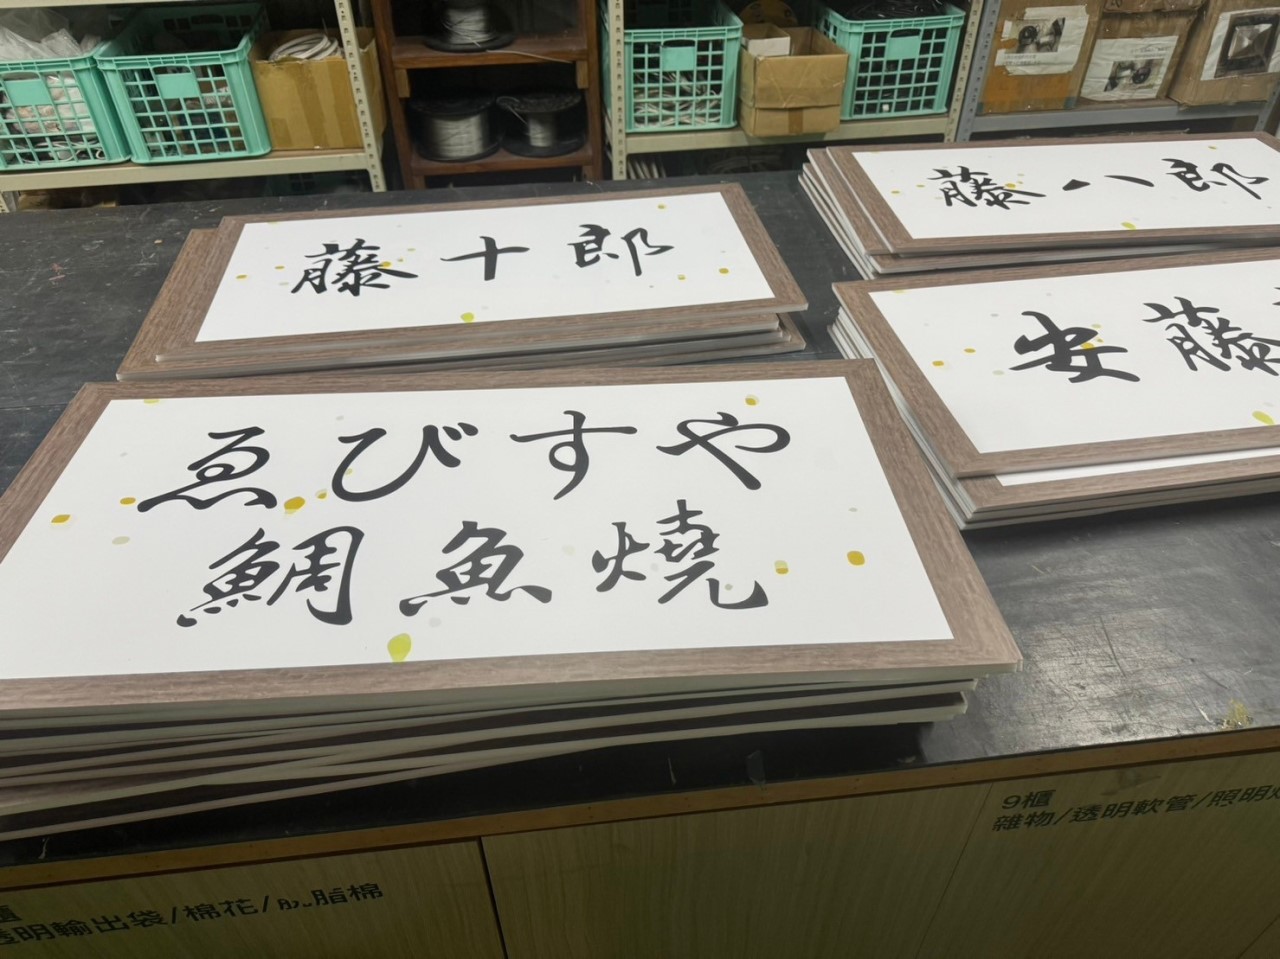 藤十郎
藤八郎
安藤
ゑびすや
鯛魚燒
9櫃
雜物/透明軟管/照明
櫃
透明輸出袋/棉花/脫脂棉